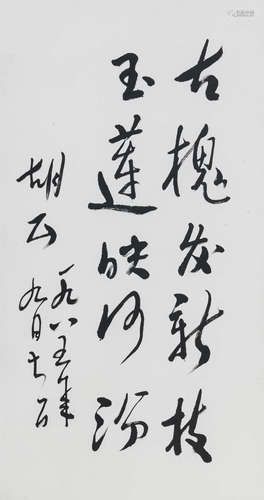 古槐发新枝
玉莲映河汾
胡云
一九八五年
九月七日